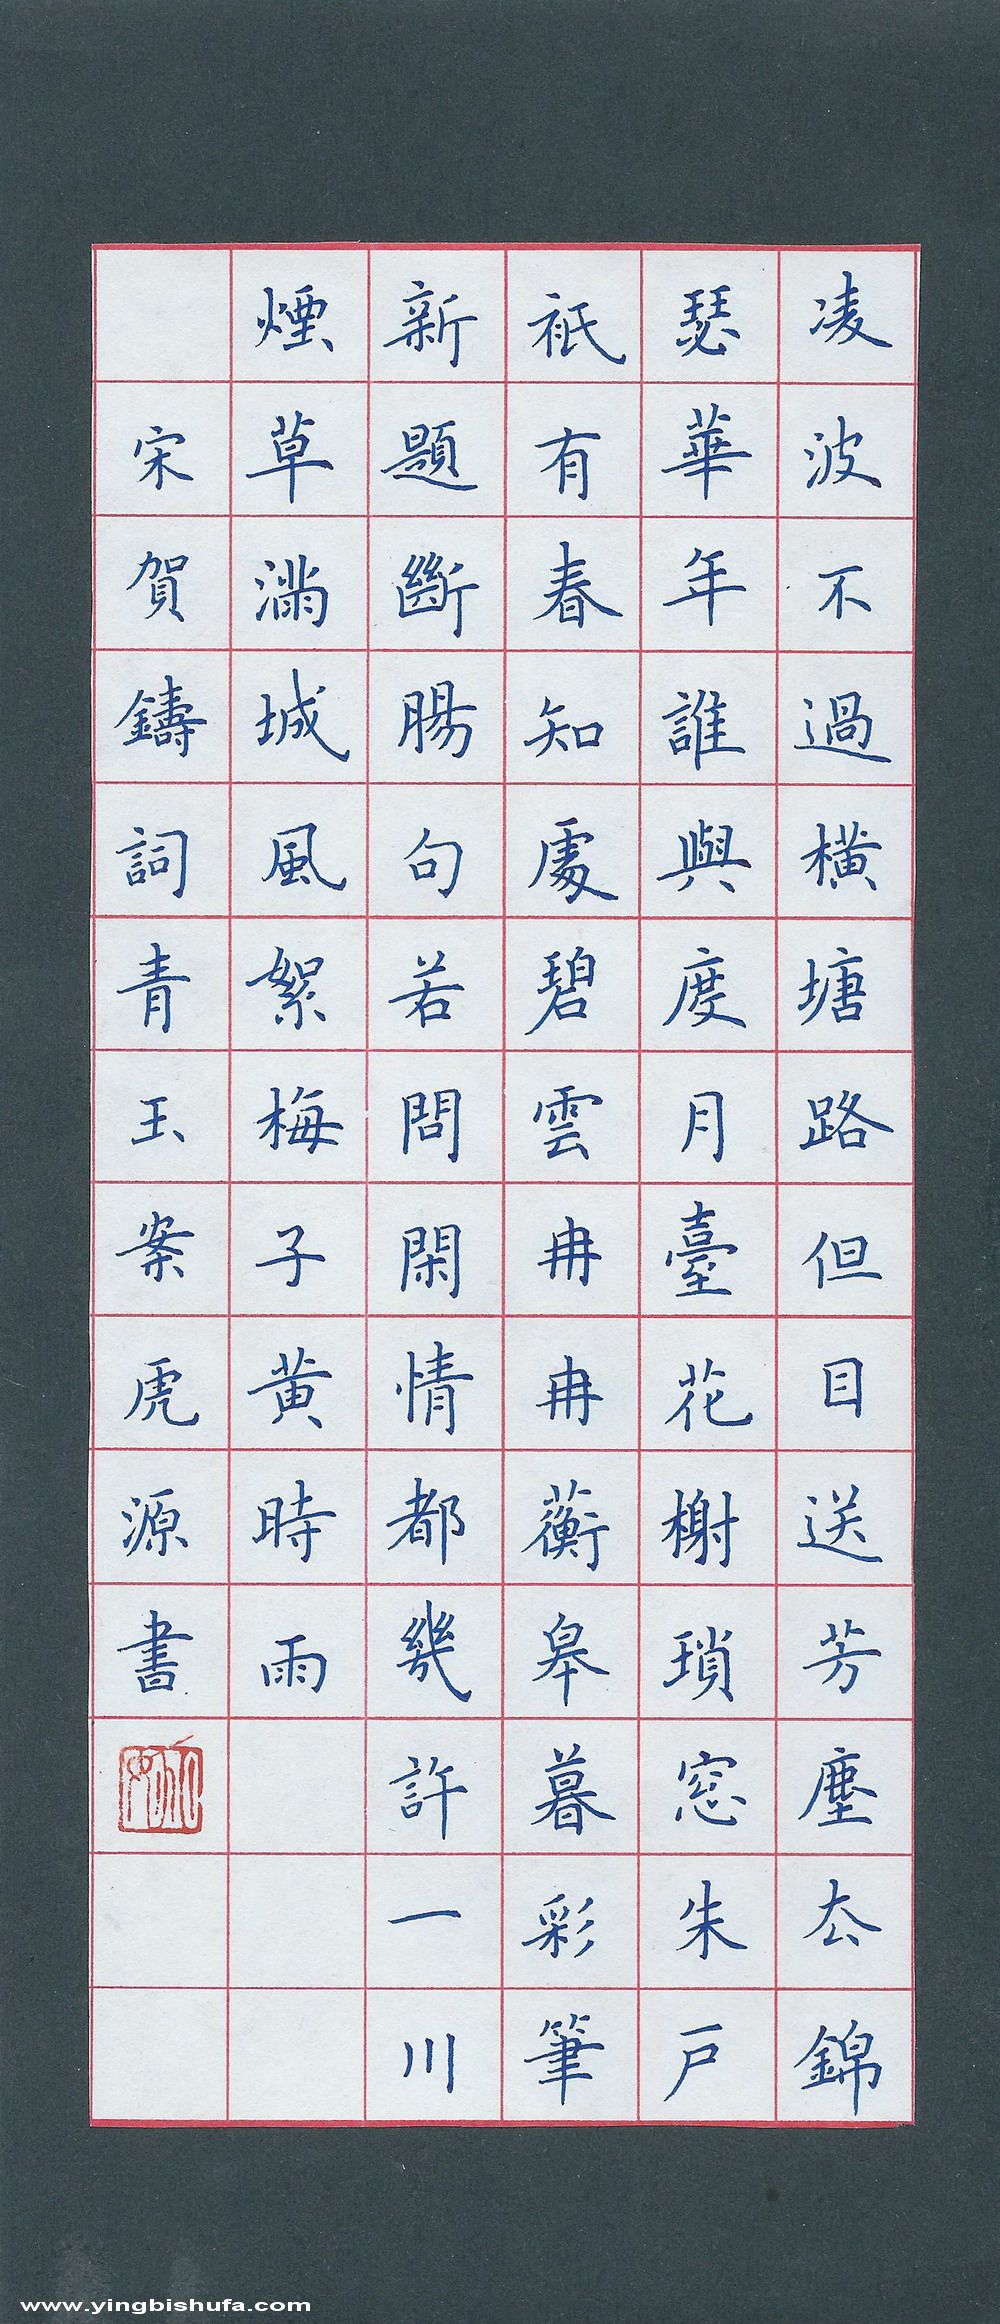 凌波不過橫塘路但目送芳塵厺錦
瑟華年誰與度月臺花榭瑣窓朱戶
祇有春知處碧雲冉冉蘅皋暮彩筆
新題斷腸句若問閑情都幾許一川
煙草滿城風絮梅子黄時雨
宋賀鑄詞青玉案虎源書
www.yingbishufa.com